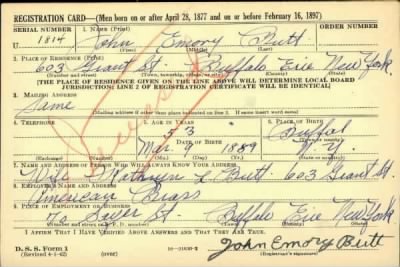 REGISTRATION CARD—(Men born on or after April 28, 1877 and on or before February 16, 1897)
SERIAL NUMBER 1. NAME (Print) ORDER NUMBER
1814 John Emory Butt
(First) (Middle) (Last)
2. PLACE OF RESIDENCE (Print)
603 Grant St. Buffalo Erie New York
(Number and street) (Town, township, village, or city) (County) (State)
[THE PLACE OF RESIDENCE GIVEN ON THE LINE ABOVE WILL DETERMINE LOCAL BOARD
JURISDICTION; LINE 2 OF REGISTRATION CERTIFICATE WILL BE IDENTICAL]
3. MAILING ADDRESS
Same
[Mailing address if other than place indicated on line 2. If same insert word same]
4. TELEPHONE 5. AGE IN YEARS 6. PLACE OF BIRTH
53 Buffalo
DATE OF BIRTH
Mar. 9 1889 N.Y.
(Exchange) (Number) (Mo.) (Day) (Yr.) (State or country)
7. NAME AND ADDRESS OF PERSON WHO WILL ALWAYS KNOW YOUR ADDRESS
Wife Kathryn L Butt 603 Grant St.
8. EMPLOYER'S NAME AND ADDRESS
American Brass
9. PLACE OF EMPLOYMENT OR BUSINESS
70 Sayer St. Buffalo Erie New York
I AFFIRM THAT I HAVE VERIFIED ABOVE ANSWERS AND THAT THEY ARE TRUE.
D. S. S. Form 1
(Revised 4-1-42) (over) John Emory Butt
(Registrant's signature)